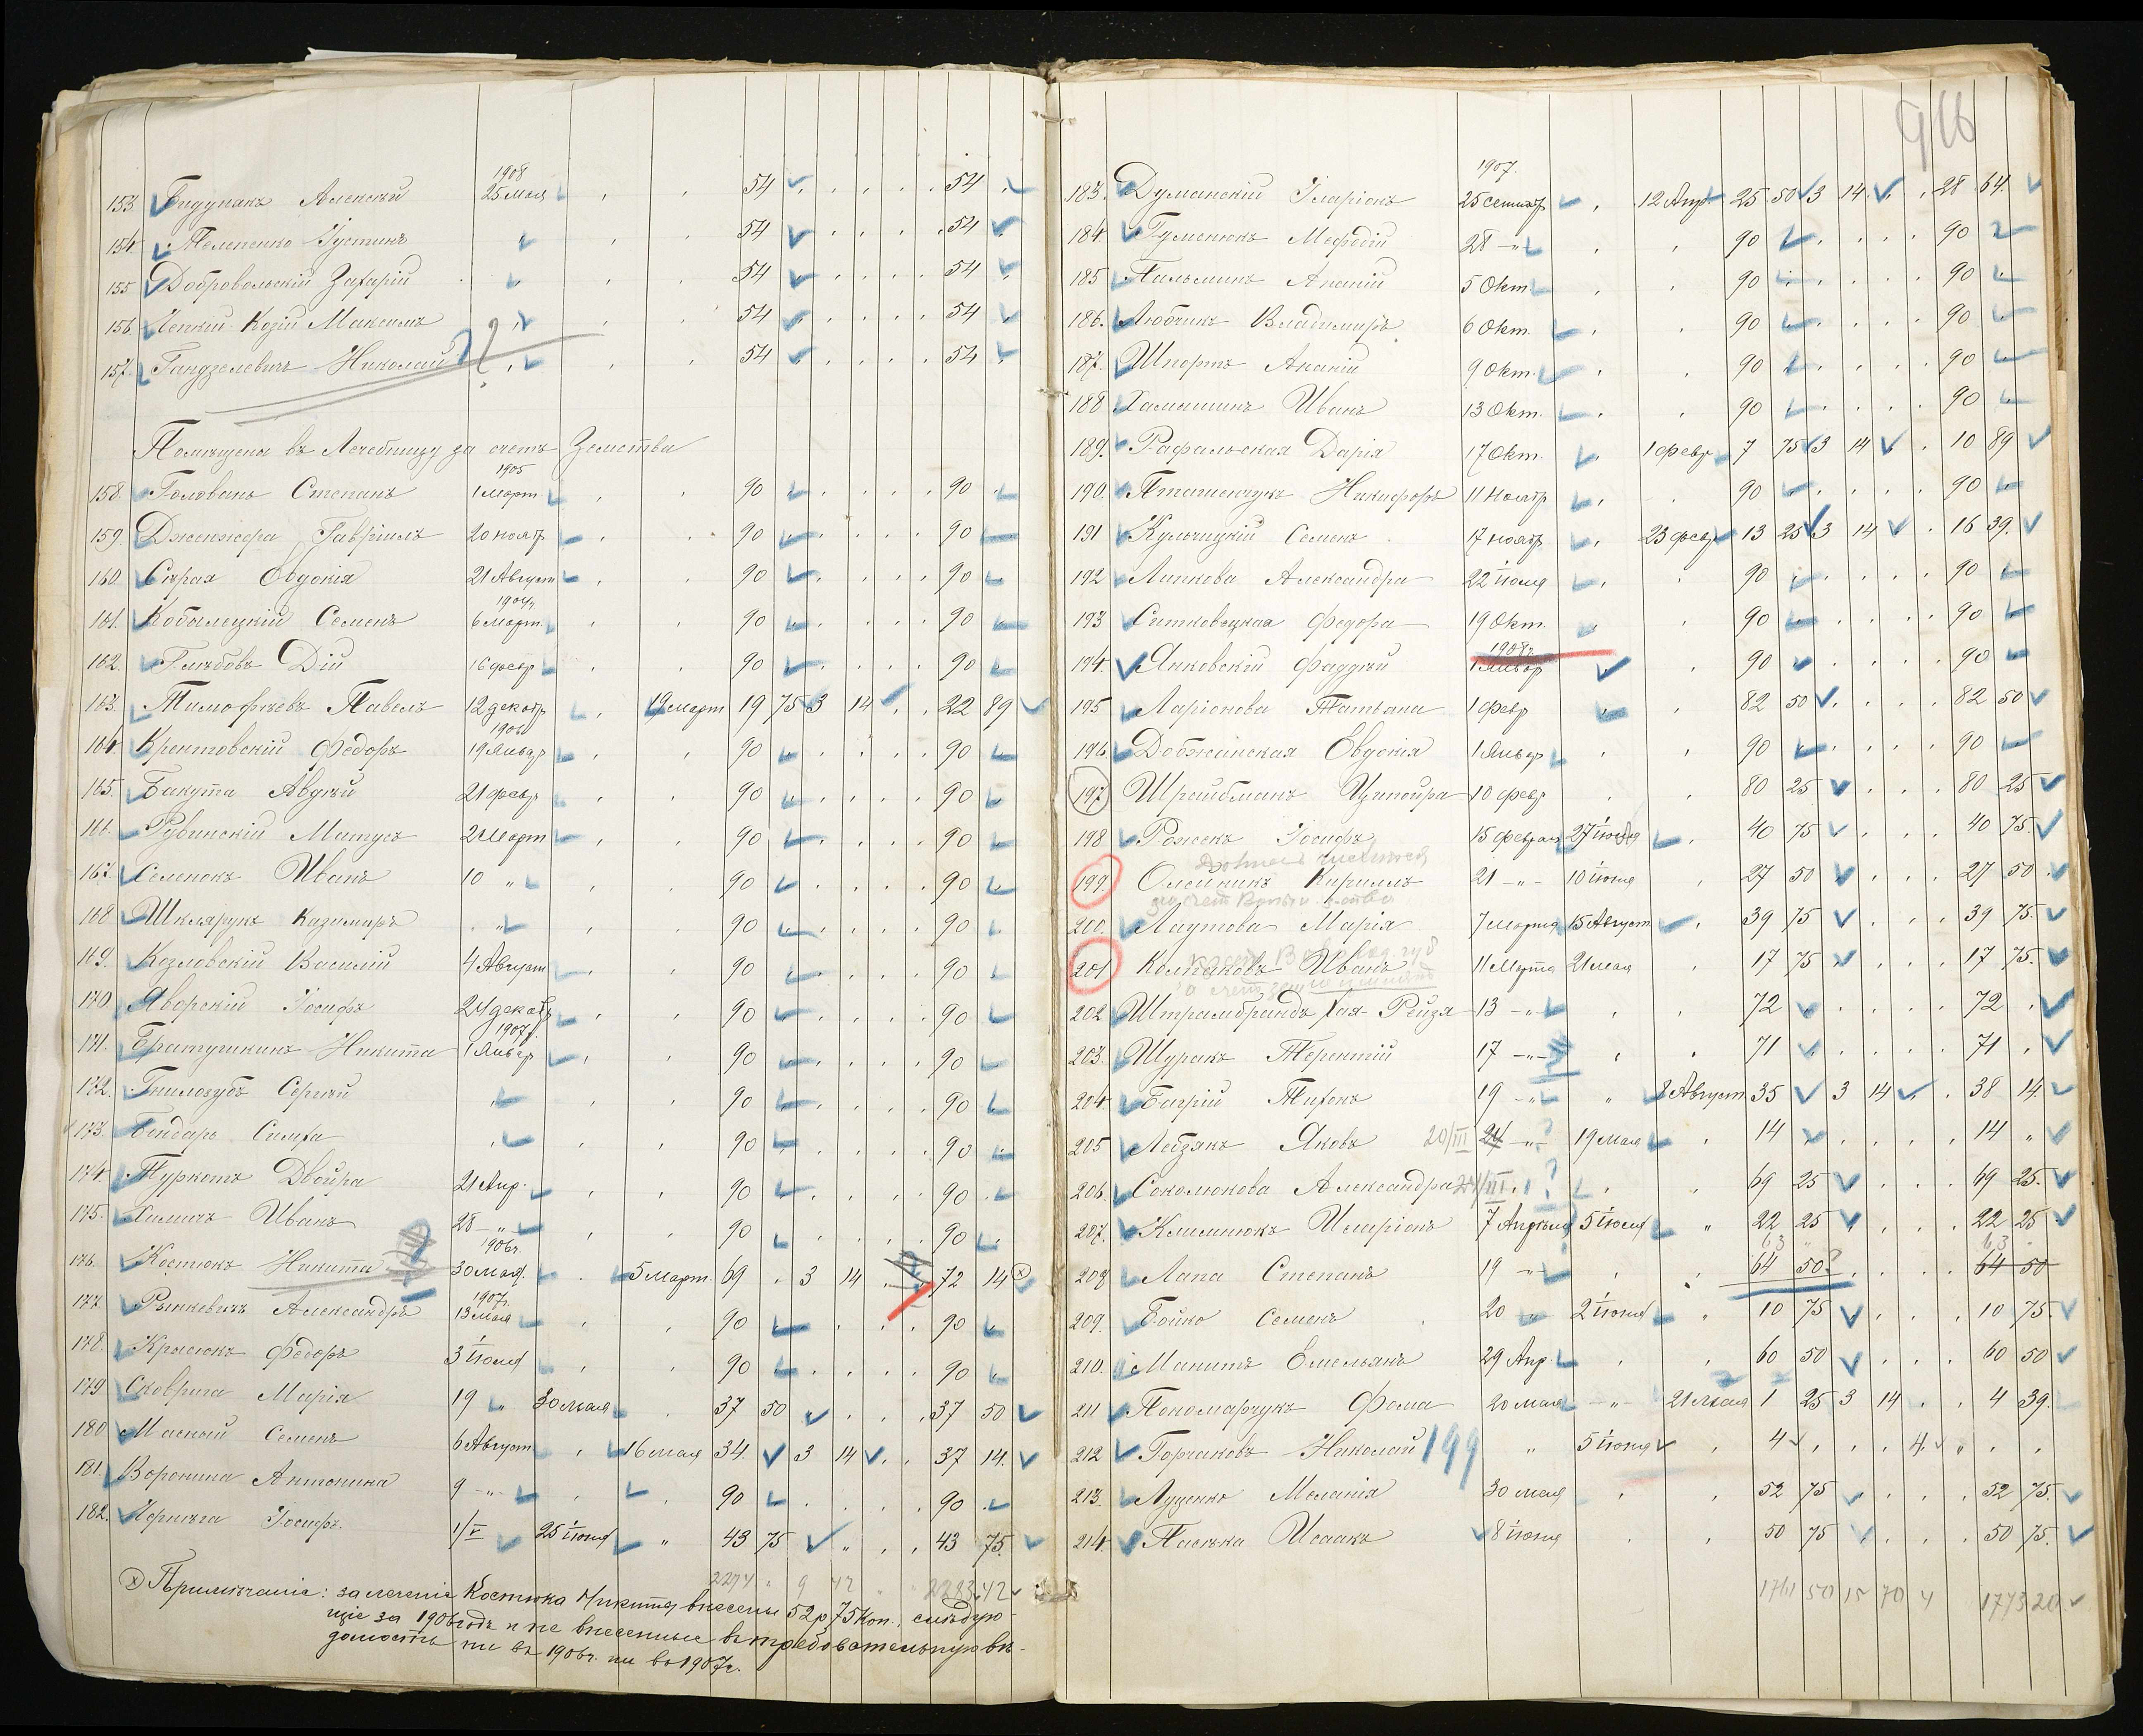 1908
153. Бидунакъ Алексѣй 25 Мая 54 54
154. Телепенко Іустинъ " 54 54
155 Добровольскій Захарій " 54 54
156 Козій Максимъ " 54 54
157. Гандзелевичъ Николай " 54 54
Помѣщены въ Лечебницу за счетъ Земства
1905
158. Головань Степанъ 1 Март. 90 90
159. Дженжера Гавріилъ 20 ноябр 90 90
160. Сѣрая Евдокія 21 Август 90 90
1904г.
161. Кобылецкій Семенъ 6 Март. 90 90
162. Глѣбовъ Дій 16 февр 90 90
163. Тимофѣевъ Павелъ 12 декабр 19 Март 19 75 3 14 22 89
1906
164 Крентовскій Федоръ 19 Январ 90 90
165. Бакута Авдѣй 21 февр 90 90
166. Рувинскій Матусъ 2 Март 90 90
167. Селенокъ Иванъ 10 " 90 90
168 Шкларукъ Казимиръ " 90 90
169. Козловскій Василій 4 Август 90 90
170 Яворскій Іосифъ 24 декабр 90 90
1907г.
171. Братушкинъ Никита 1 Январ 90 90
172. Гнилозубъ Сергѣй " 90 90
173. Бендарь Симха " 90 90
174. Туркотъ Двойра 21 Апр. 90 90
175. Химичъ Иванъ 28 " 90 90
1906г.
176. Костюкъ Никита 30 мая. 5 Март. 69 3 14 72 14 (х)
1907г.
177. Рынкевичъ Александръ 13 мая 90 90
178. Красюкъ Федоръ 3 Іюля 90 90
179 Сковрига Марія 19 " 30 мая 37 50 37 50
180 Маский Семенъ 6 Август 16 мая 34. 3 14 37 14.
181. Воронина Антонина 9 -"- 90 90
182. Чернега Іосифъ. 1/V 25 Іюня " 43 75 " 43 75.
2274 9 42 2283.42
(х) Примѣчаніе: за леченіе Костюка Никиты внесены 52р 75 Коп., слѣдую-
щіе за 1906 годъ и не внесенные въ требовательную вѣ-
домость ни въ 1906г. ни въ 1907г.
916
1907.
183. Думанскій Иларіонъ 25 сентябр 12 Апр. 25 50 3 14 28 64.
184. Гуменюкъ Мефодій 28 -"- 90 90
185 Пальминъ Ананій 5 Окт. 90 90
186. Любчикъ Владимиръ 6 Окт. 90 90
187. Шпортъ Ананій 9 Окт. 90 90
188 Хамишинъ Иванъ 13 Окт. 90 90
189. Рафальская Дарія 17 Окт. 1 февр 7 75 3 14 10 89
190. Пташенчукъ Никифоръ 11 Ноябр 90 90
191 Кульчицкій Семенъ 17 ноябр 23 февр 13 25 3 14 16 39.
192 Липкова Александра 22 Іюля 90 90
193 Ситковецкая Федора 19 Окт. 90 90
1908г.
194. Янковскій Фаддѣй 1 Январ 90 90
195 Ларіонова Татьяна 1 февр 82 50 82 50
196 Добжанская Евдокія 1 Январ 90 90
197 Шрайбманъ Ципойра 10 февр 80 25 80 25
198 Роженъ Іосифъ 15 февраля 27 Іюня 40 75 40 75.
199. Олейникъ Кириллъ 21 -"- 10 Іюня 27 50 27 50
200. Лаутова Марія 7 марта 15 Август 39 75 39 75.
201 Колпаковъ Иванъ 11 Марта 21 мая 17 75 17 75.
202 Штрамбрандъ Хая-Рейзя 13 -"- 72 72
203. Шуракъ Терентій 17 -"- 71 71
204. Багрій Тихонъ 19 -"- " 8 Август 35 3 14 38 14.
205 Лебзякъ Яковъ 20/III 24 -"- ? 19 мая 14 14 "
206. Соколюкова Александра 24/III ? 69 25 69 25.
207. Климнюкъ Иларіонъ 7 Апрѣля 5 Іюля " 22 25 22 25
63 63
208 Лапа Степанъ 19 -"- 64 50? 64 50
209. Бойко Семенъ 20 " 2 Іюня " 10 75 10 75.
210. Микитъ Емельянъ 29 Апр. 60 50 60 50
211 Пономарчукъ Фома 20 мая -"- 21 мая 1 25 3 14 4 39.
212 Горчаковъ Николай 199 " 5 Іюня 4 4
213. Луценко Меланія 30 мая 52 75 52 75.
214. Пасѣка Исаакъ 8 Іюня 50 75 50 75.
1761 50 15 70 4 1773 20